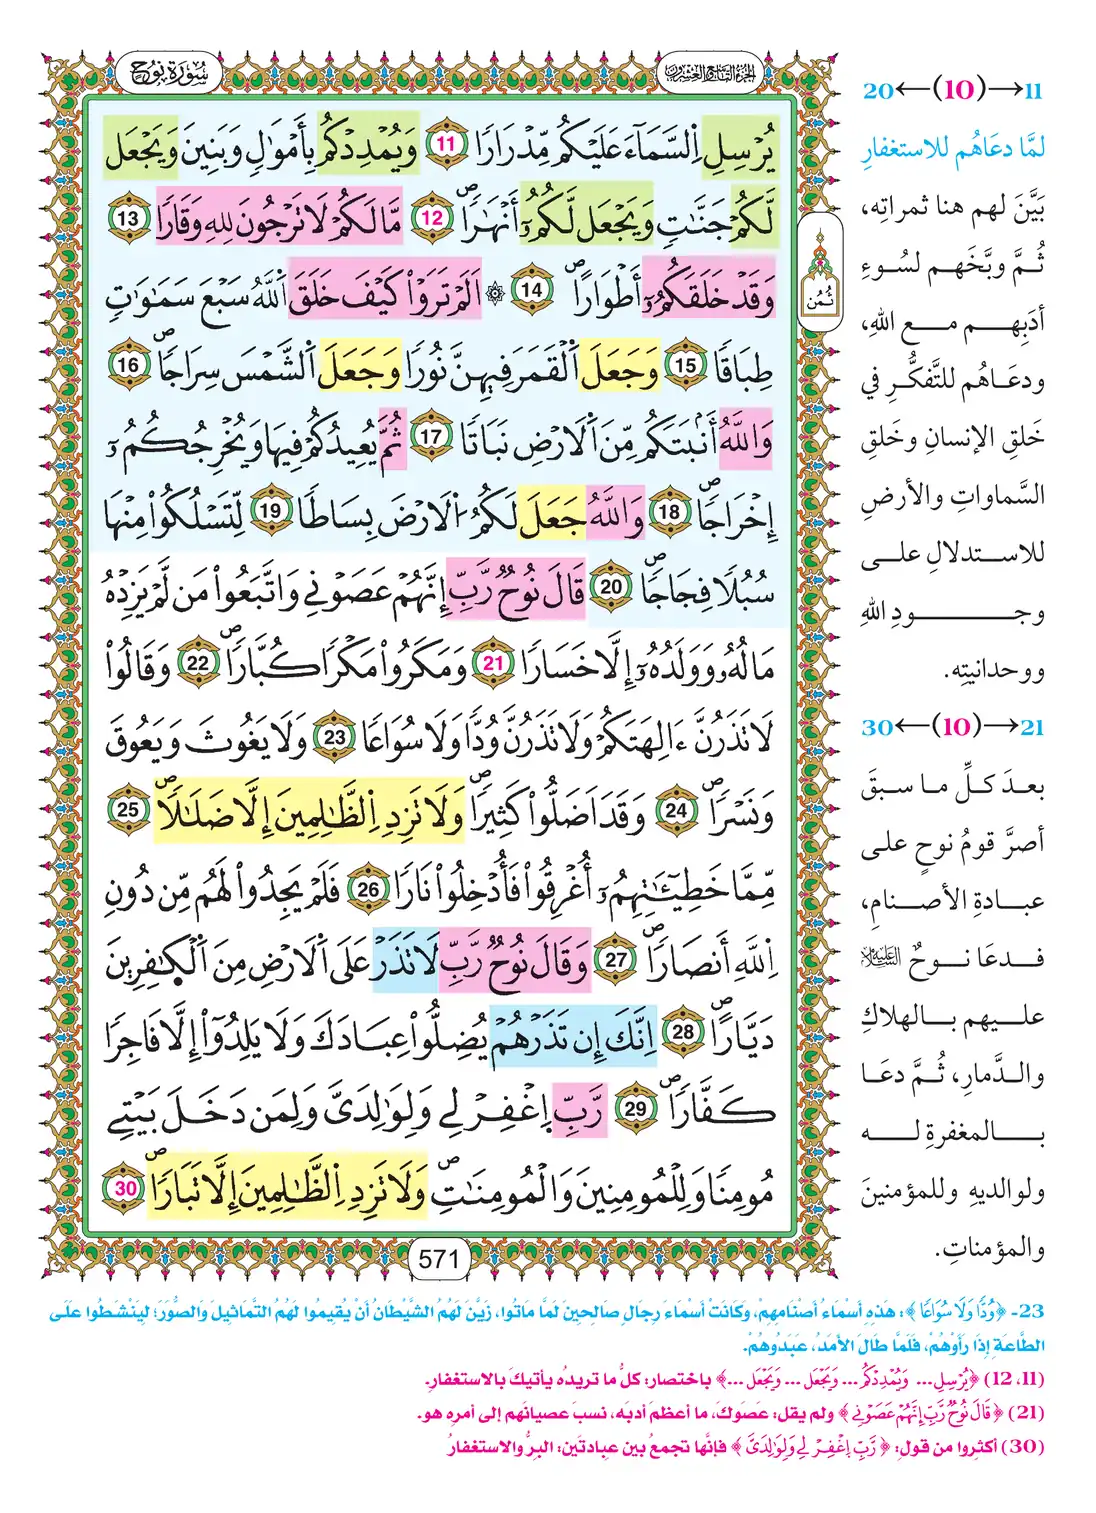 سُورَةُ نُوحٍ
الجزء التاسع والعشرون
يُرْسِلِ اِ۬لسَّمَآءَ عَلَيْكُم مِّدْرَارٗا 11 وَيُمْدِدْكُم بِأَمْوَٰلٖ وَبَنِينَ وَيَجْعَل
لَّكُمْ جَنَّٰتٖ وَيَجْعَل لَّكُمُۥٓ أَنْهَٰرٗاۖ 12 مَّا لَكُمْ لَا تَرْجُونَ لِلهِ وَقَارٗا 13
وَقَدْ خَلَقَكُمُۥٓ أَطْوَارًاۖ 14 ۞ اَلَمْ تَرَوْاْ كَيْفَ خَلَقَ اَ۬للَّهُ سَبْعَ سَمَٰوَٰتٖ
طِبَاقٗا 15 وَجَعَلَ اَ۬لْقَمَرَ فِيهِنَّ نُورٗا وَجَعَلَ اَ۬لشَّمْسَ سِرَاجٗاۖ 16
وَاللَّهُ أَنۢبَتَكُم مِّنَ اَ۬لَارْضِ نَبَاتٗا 17 ثُمَّ يُعِيدُكُمْ فِيهَا وَيُخْرِجُكُمُۥٓ
إِخْرَاجٗاۖ 18 وَاللَّهُ جَعَلَ لَكُمُ اُ۬لَارْضَ بِسَاطٗا 19 لِّتَسْلُكُواْ مِنْهَا
سُبُلٗا فِجَاجٗاۖ 20 قَالَ نُوحٞ رَّبِّ إِنَّهُمْ عَصَوْنِے وَاتَّبَعُواْ مَن لَّمْ يَزِدْهُ
مَالُهُۥ وَوَلَدُهُۥٓ إِلَّا خَسَارٗا 21 وَمَكَرُواْ مَكْرٗا كُبَّارٗاۖ 22 وَقَالُواْ
لَا تَذَرُنَّ ءَالِهَتَكُمْ وَلَا تَذَرُنَّ وُدّٗا وَلَا سُوَاعٗا 23 وَلَا يَغُوثَ وَيَعُوقَ
وَنَسْرٗاۖ 24 وَقَدَ اَضَلُّواْ كَثِيرٗاۖ وَلَا تَزِدِ اِ۬لظَّٰلِمِينَ إِلَّا ضَلَٰلٗاۖ 25
مِّمَّا خَطِيٓـَٰٔتِهِمُۥٓ أُغْرِقُواْ فَأُدْخِلُواْ نَارٗا 26 فَلَمْ يَجِدُواْ لَهُم مِّن دُونِ
اِ۬للَّهِ أَنصَارٗاۖ 27 وَقَالَ نُوحٞ رَّبِّ لَا تَذَرْ عَلَى اَ۬لَارْضِ مِنَ اَ۬لْكٰ۪فِرِينَ
دَيَّارًاۖ 28 اِنَّكَ إِن تَذَرْهُمْ يُضِلُّواْ عِبَادَكَ وَلَا يَلِدُوٓاْ إِلَّا فَاجِرٗا
كَفَّارٗاۖ 29 رَّبِّ اِ۪غْفِرْ لِے وَلِوَٰلِدَيَّ وَلِمَن دَخَلَ بَيْتِے
مُومِنٗا وَلِلْمُومِنِينَ وَالْمُومِنَٰتِۖ وَلَا تَزِدِ اِ۬لظَّٰلِمِينَ إِلَّا تَبَارٗاۖ 30
ثُمُن
571
20←(10)→11
لمَّا دعَاهُم للاستغفارِ
بَيَّنَ لهم هنا ثمراتِه،
ثُمَّ وبَّخَهم لسُوءِ
أدَبِهم مع اللهِ،
ودعَاهُم للتَّفكُّرِ في
خَلقِ الإنسانِ وخَلقِ
السَّماواتِ والأرضِ
للاستدلالِ على
وجودِ اللهِ
ووحدانيتِه.
30←(10)→21
بعدَ كلِّ ما سبقَ
أصرَّ قومُ نوحٍ على
عبادةِ الأصنامِ،
فدعَا نوحٌ عليه السلام
عليهم بالهلاكِ
والدَّمارِ، ثُمَّ دعَا
بالمغفرةِ له
ولوالديهِ وللمؤمنينَ
والمؤمناتِ.
23- ﴿وُدّٗا وَلَا سُوَاعٗا﴾: هَذِهِ أَسْمَاءُ أَصْنَامِهِمْ، وَكَانَتْ أَسْمَاءَ رِجَالٍ صَالِحِينَ لَمَّا مَاتُوا، زَيَّنَ لَهُمُ الشَّيْطَانُ أَنْ يُقِيمُوا لَهُمُ التَّمَاثِيلَ وَالصُّوَرَ؛ لِيَنْشَطُوا عَلَى
الطَّاعَةِ إِذَا رَأَوْهُمْ، فَلَمَّا طَالَ الأَمَدُ، عَبَدُوهُمْ.
(11، 12) ﴿يُرْسِلِ ... وَيُمْدِدْكُم ... وَيَجْعَل ... وَيَجْعَل ...﴾ باختصار: كلُّ ما تريدُه يأتيكَ بالاستغفارِ.
(21) ﴿قَالَ نُوحٞ رَّبِّ إِنَّهُمْ عَصَوْنِے﴾ ولم يقل: عصَوكَ، ما أعظمَ أدبَه، نسبَ عصيانَهم إلى أمرِه هو.
(30) أكثروا من قول: ﴿رَّبِّ اِ۪غْفِرْ لِے وَلِوَٰلِدَيَّ﴾ فإنَّها تجمعُ بين عبادتَين: البرُّ والاستغفارُ